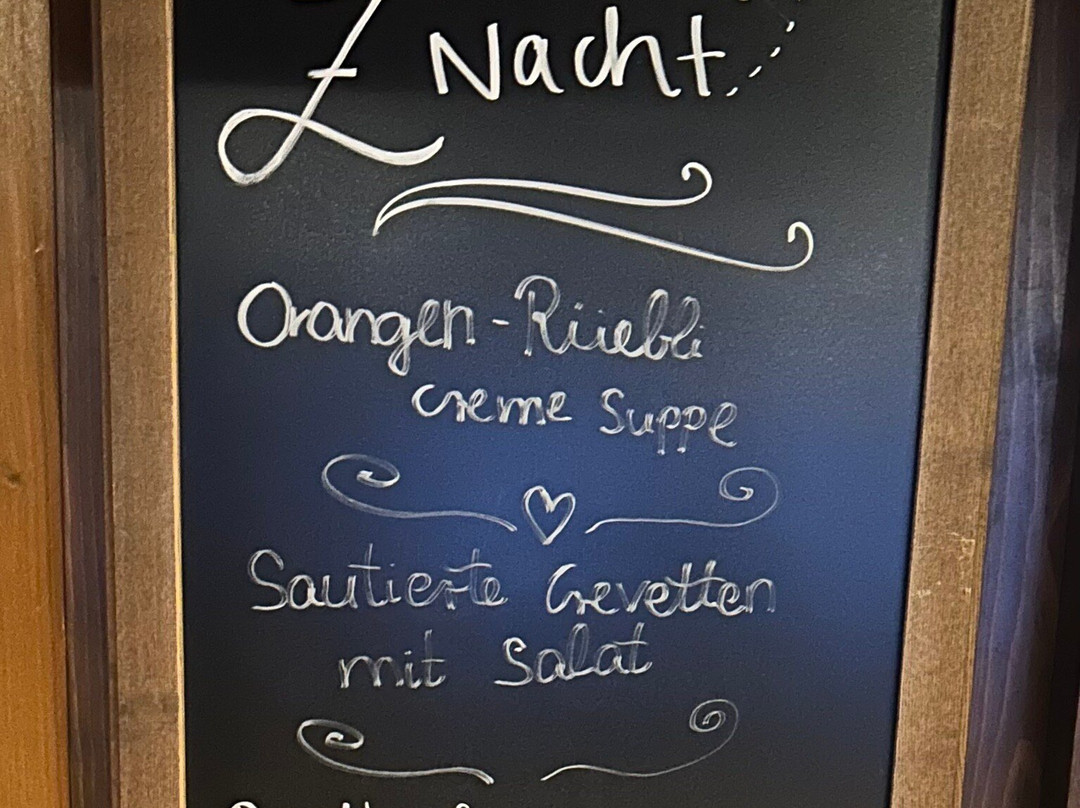 Z Nacht
Orangen-Rüebli
creme Suppe
Sautierte Crevetten
mit Salat